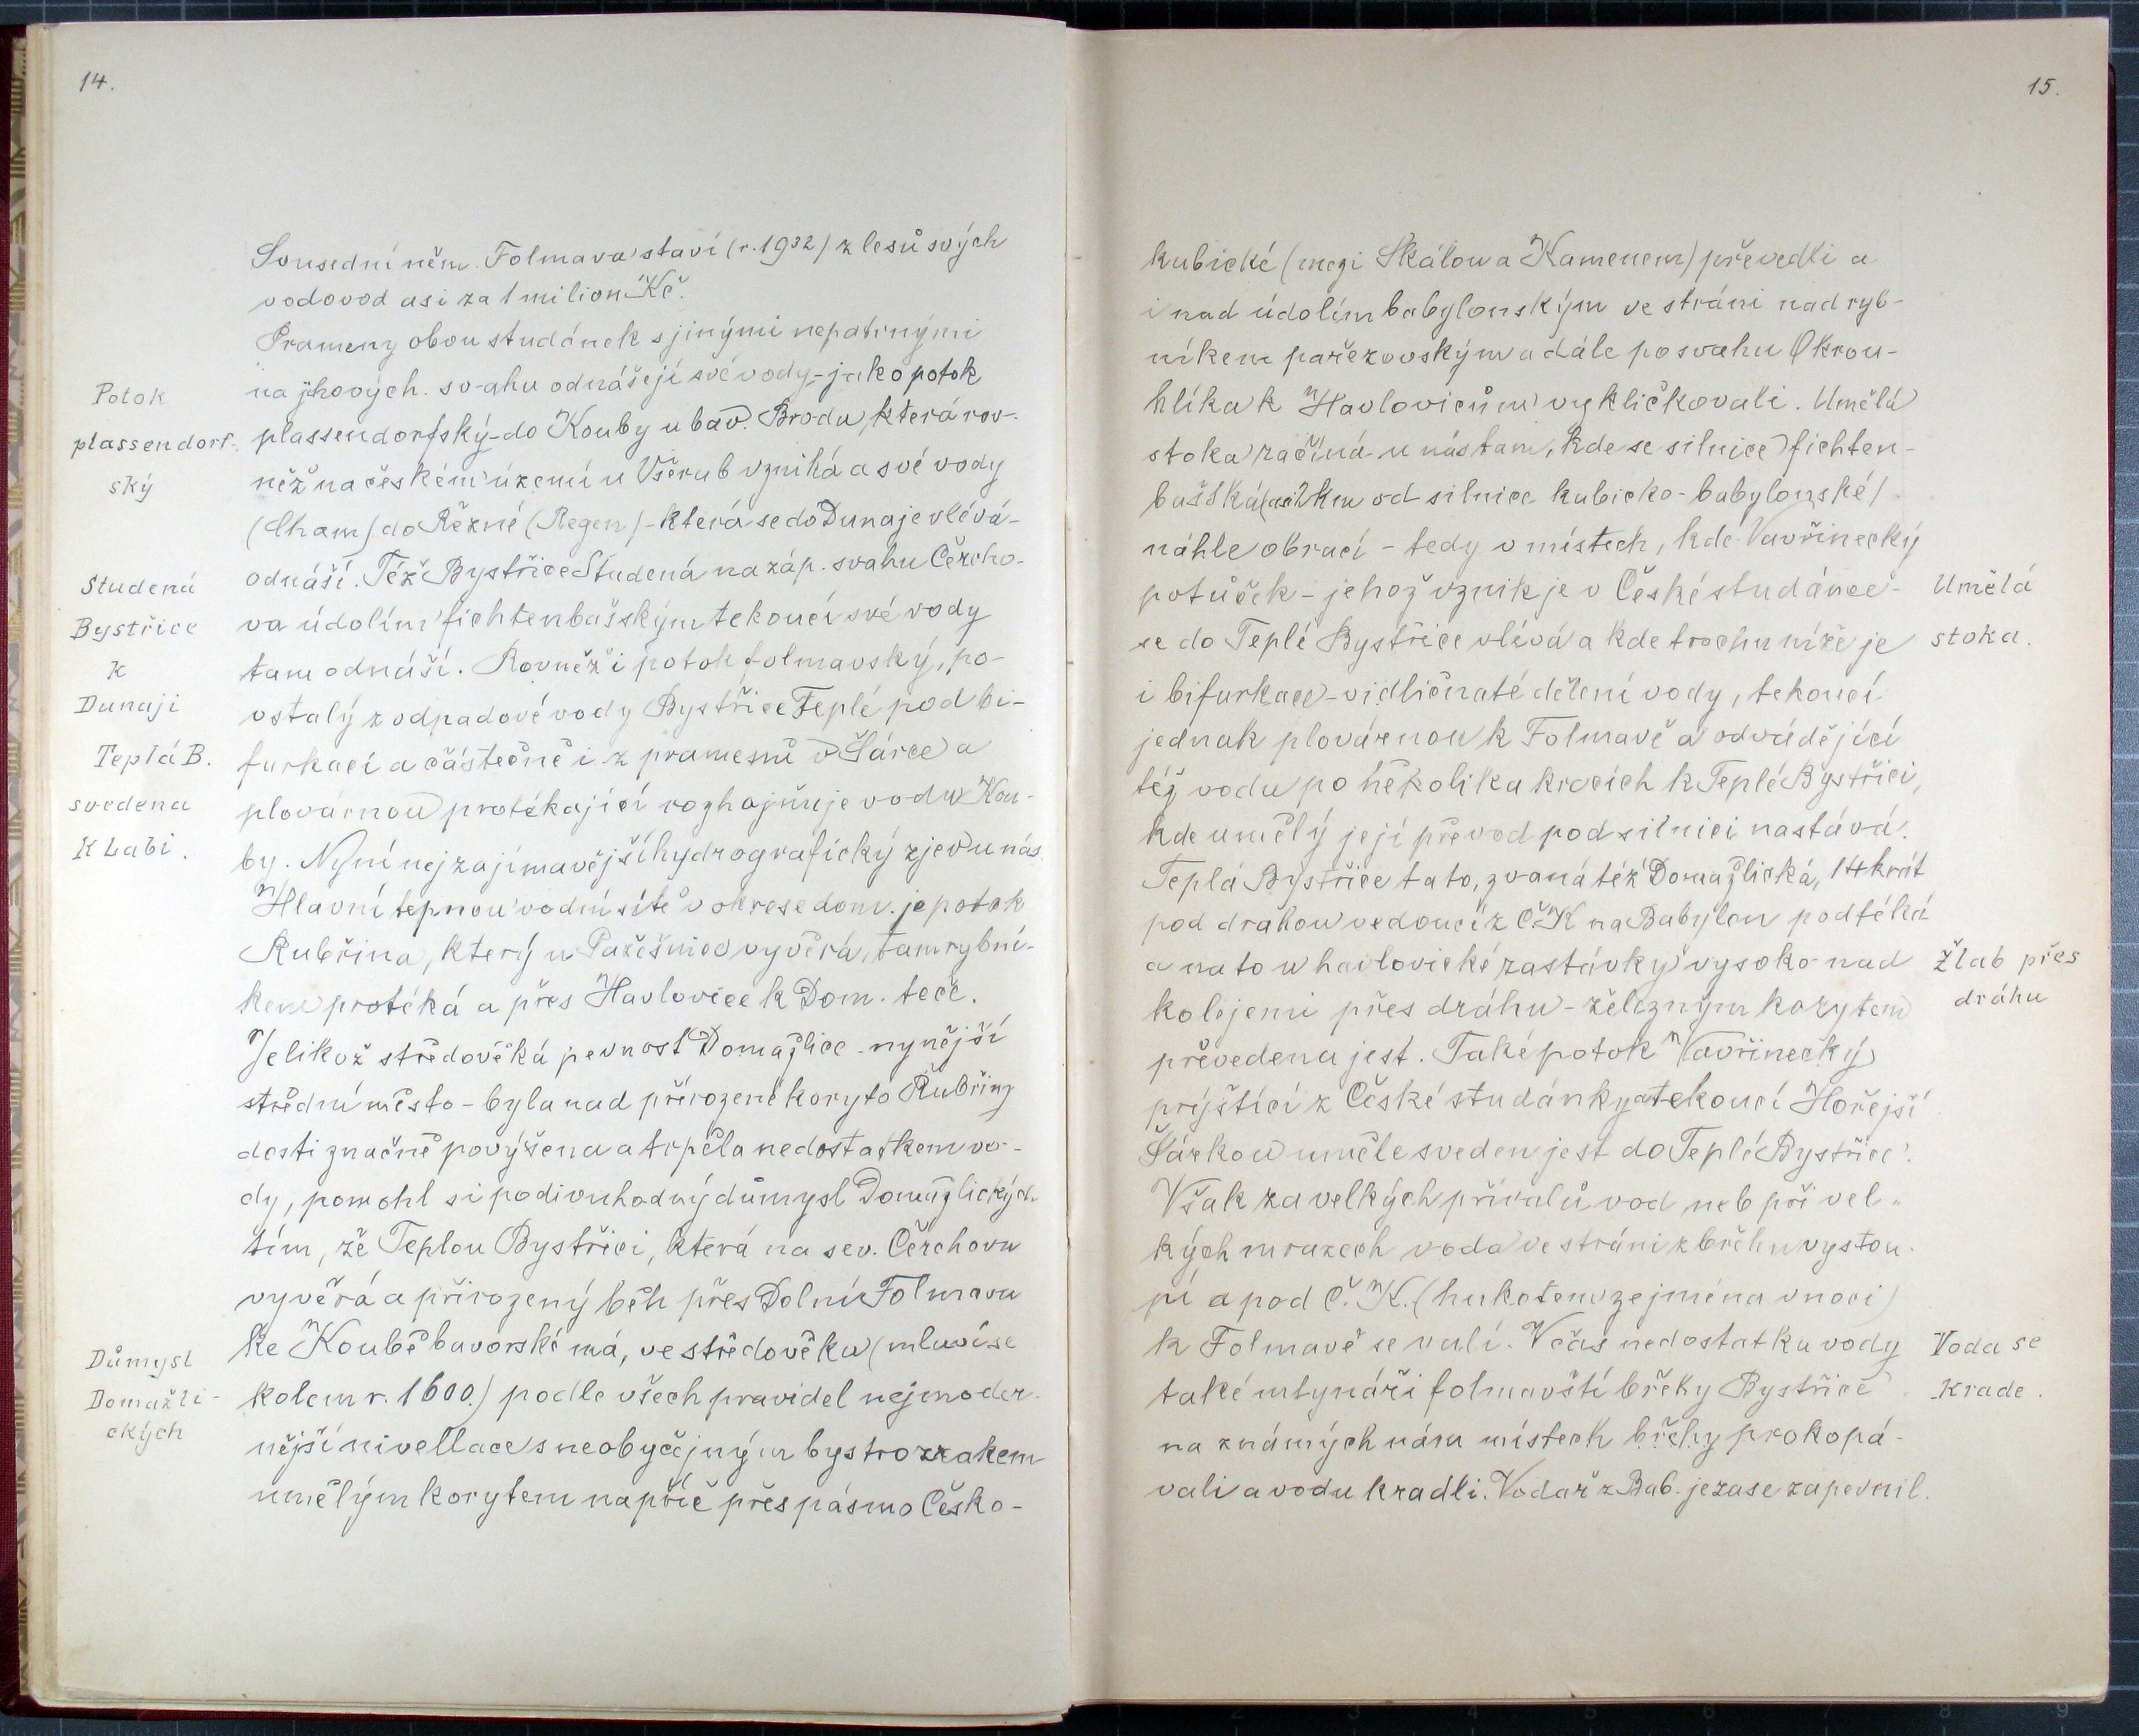 14.
Sousední něm. Folmava staví (r. 1932) z lesů svých
vodovod asi za 1 milion Kč.
Prameny obou studánek s jinými nepatrnými
na jihových. svahu odnášejí své vody - jako potok
plassendorfský - do Kouby u bav. Brodu, která rov-
něž na českém území u Všerub vzniká a své vody
(Cham) do Řezné (Regen) - která se do Dunaje vlévá -
odnáší. Též Bystřice Studená na záp. svahu Čercho-
va údolím fichtenbašským tekoucí své vody
tam odnáší. Rovněž i potok folmavský, po-
vstalý z odpadové vody Bystřice Teplé pod bi-
furkací a částečně i z pramenů v Šárce a
plovárnou protékající rozhojňuje vodu Kou-
by. Nyní nejzajímavější hydrografický zjev u nás.
Hlavní tepnou vodní sítě v okrese dom. je potok
Rubřina, který u Pařešnice vyvěrá, tam rybní-
kem protéká a přes Havlovice k Dom. teče.
Jelikož středověká pevnost Domažlice - nynější
střední město - byla nad přirozené koryto Rubřiny
dosti značně povýšena a trpěla nedostatkem vo-
dy, pomohl si podivuhodný důmysl Domažlických
tím, že Teplou Bystřici, která na sev. Čerchovu
vyvěrá a přirozený běh přes Dolní Folmavu
ke Koubě bavorské má, ve středověku (mluví se
kolem r. 1600.) podle všech pravidel nejmoder-
nější nivellace s neobyčejným bystrozrakem
umělým korytem napříč přes pásmo Česko-
Potok
plassendorf-
ský
Studená
Bystřice
k
Dunaji
Teplá B.
svedena
K Labi.
Důmysl
Domažli-
ckých
15.
kubické (mezi Skálou a Kamenem) převedli a
i nad údolím babylonským ve stráni nad ryb-
níkem pařezovským a dále po svahu Okrou-
hlíka k Havlovicům vykličkovali. Umělá
stoka začíná u nás tam, kde se silnice fichten-
bašská (asi 2 km od silnice kubicko-babylonské)
náhle obrací - tedy v místech, kde Vavřinecký
potůček - jehož vznik je v České studánce -
se do Teplé Bystřice vlívá a kde trochu níže je
i bifurkace - vidličnaté dělení vody, tekoucí
jednak plovárnou k Folmavě a odvádějící
též vodu po několika krocích k Teplé Bystřici,
kde umělý její převod pod silnici nastává.
Teplá Bystřice tato, zvaná též Domažlická, 14krát
pod drahou vedoucí z Č. K na Babylon podtéká
a na to u havlovické zastávky vysoko nad
kolejemi přes dráhu - železným korytem
převedena jest. Také potok Vavřinecký
prýštící z České studánky a tekoucí Hořejší
Šárkou uměle sveden jest do Teplé Bystřice.
Však za velkých přívalů vod neb při vel-
kých mrazech voda ve stráni z břehu vystou-
pí a pod Č. K. (hukotem zejména v noci)
k Folmavě se valí. V čas nedostatku vody
také mlynáři folmavští břehy Bystřice
na známých nám místech břehy prokopá-
vali a vodu kradli. Vodař z Bab. je zase zapevnil.
Umělá
stoka.
Žlab přes
dráhu
Voda se
krade.